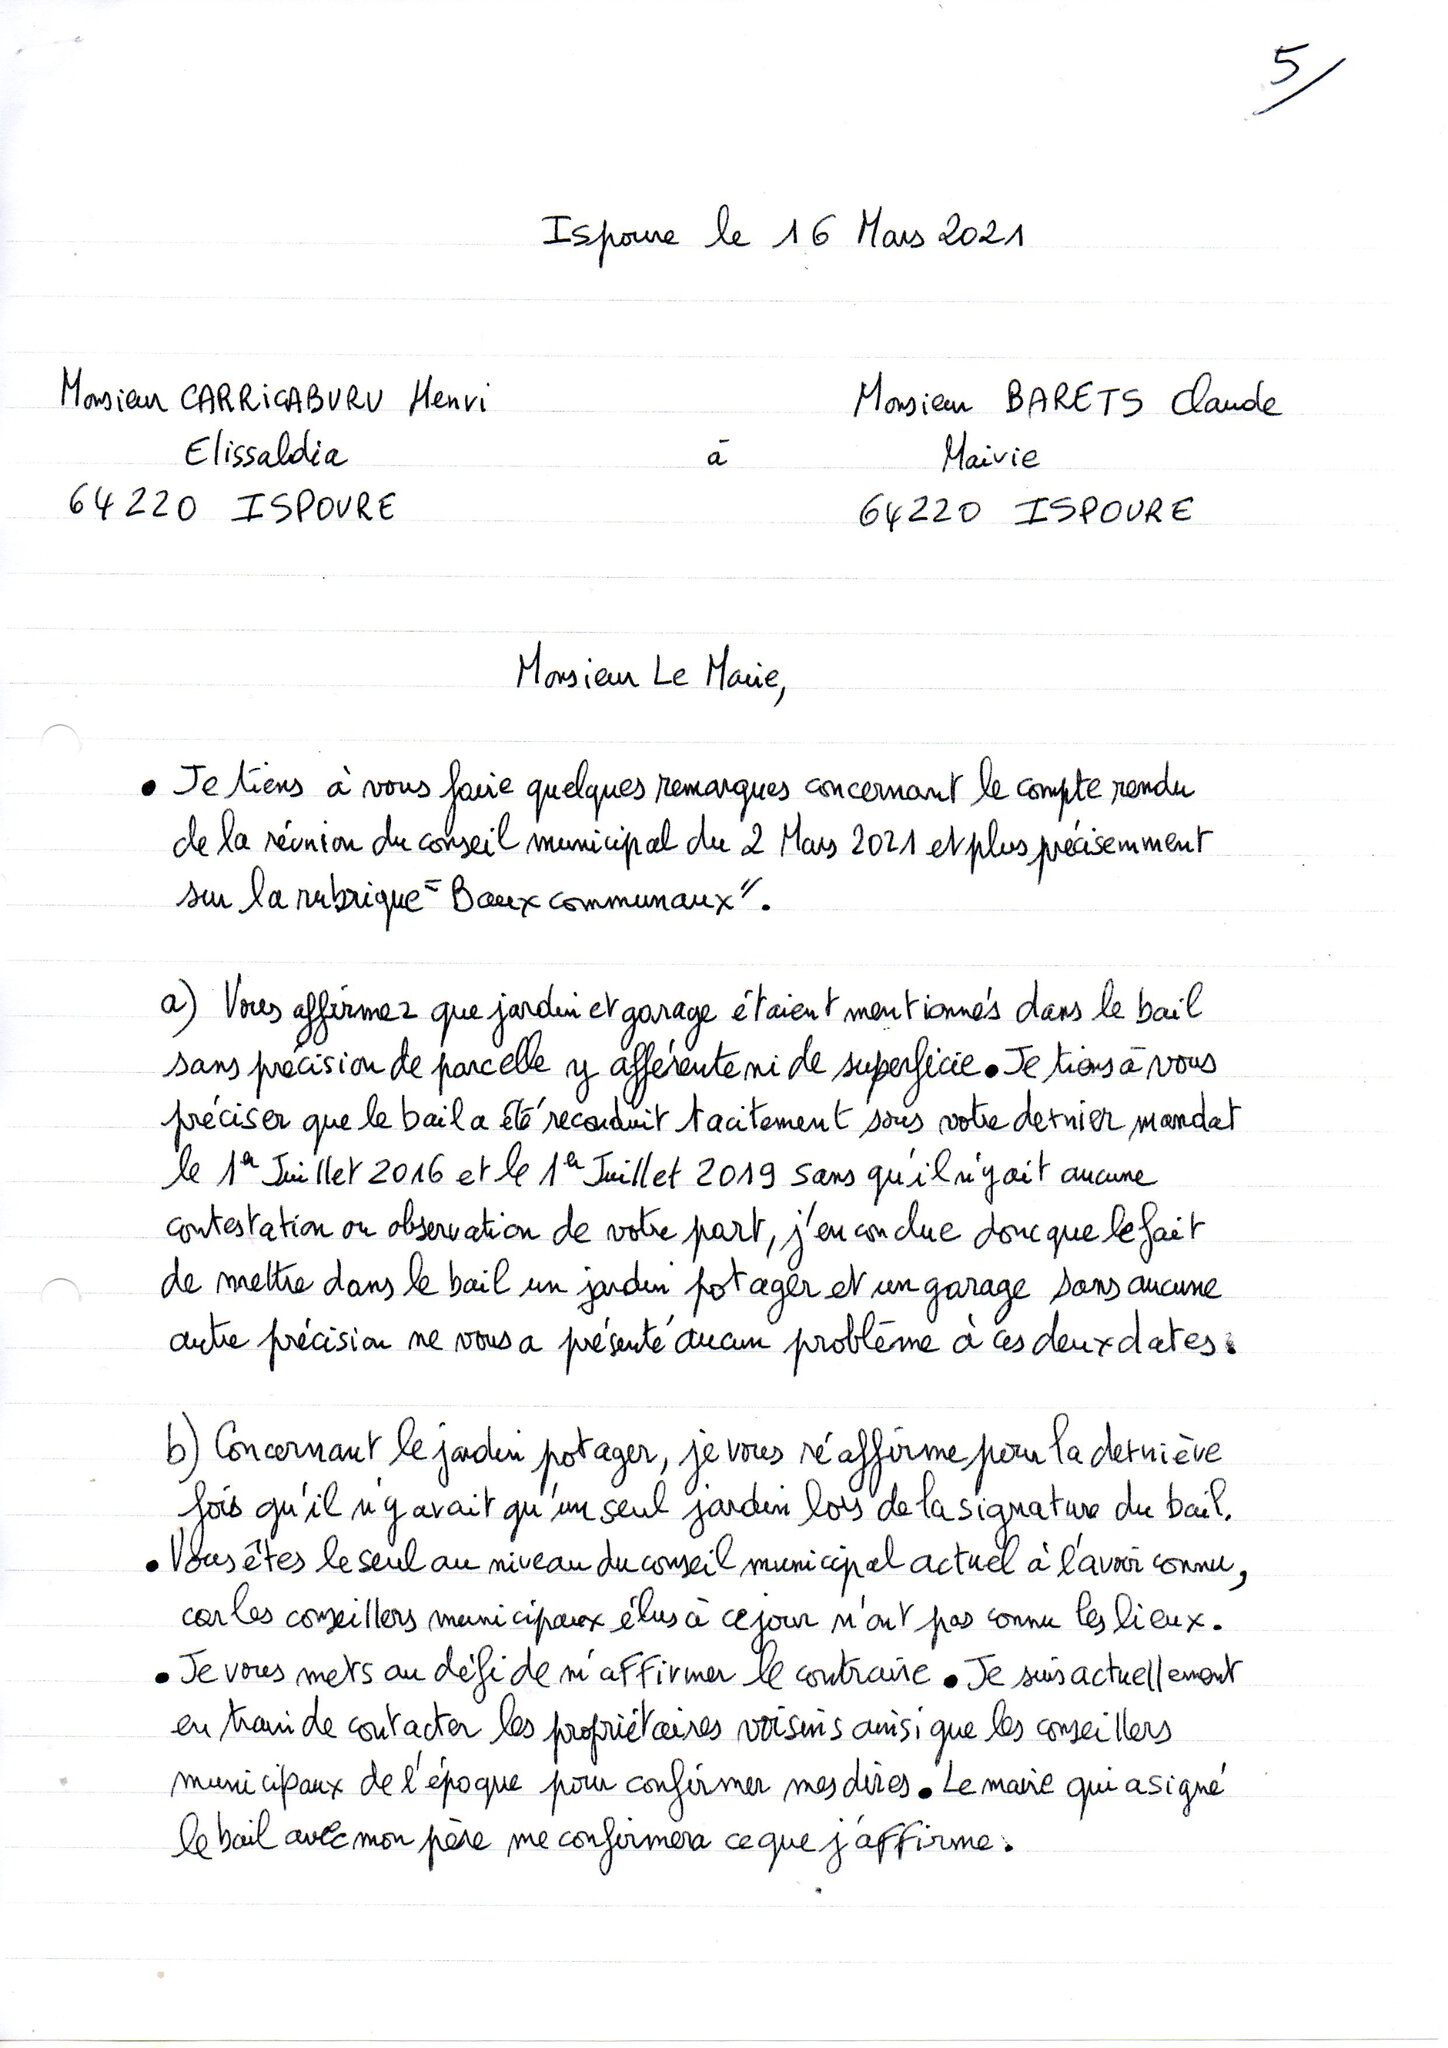 5/
Ispoure le 16 Mars 2021
Monsieur CARRICABURU Henri
Elissaldia
64220 ISPOURE
à
Monsieur BARETS Claude
Mairie
64220 ISPOURE
Monsieur Le Maire,
• Je tiens à vous faire quelques remarques concernant le compte rendu
de la réunion du conseil municipal du 2 Mars 2021 et plus précisemment
sur la rubrique "Baux communaux".
a) Vous affirmez que jardin et garage étaient mentionnés dans le bail
sans précision de parcelle y afférente ni de superficie. Je tiens à vous
préciser que le bail a été reconduit tacitement sous votre dernier mandat
le 1er Juillet 2016 et le 1er Juillet 2019 sans qu'il n'y ait aucune
contestation ou observation de votre part, j'en conclue donc que le fait
de mettre dans le bail un jardin potager et un garage sans aucune
autre précision ne vous a présenté aucun problème à ces deux dates.
b) Concernant le jardin potager, je vous réaffirme pour la dernière
fois qu'il n'y avait qu'un seul jardin lors de la signature du bail.
• Vous êtes le seul au niveau du conseil municipal actuel à l'avoir connu,
car les conseillers municipaux élus à ce jour n'ont pas connu les lieux.
• Je vous mets au défi de m'affirmer le contraire. Je suis actuellement
en train de contacter les propriétaires voisins ainsi que les conseillers
municipaux de l'époque pour confirmer mes dires. Le maire qui a signé
le bail avec mon père me confirmera ce que j'affirme.